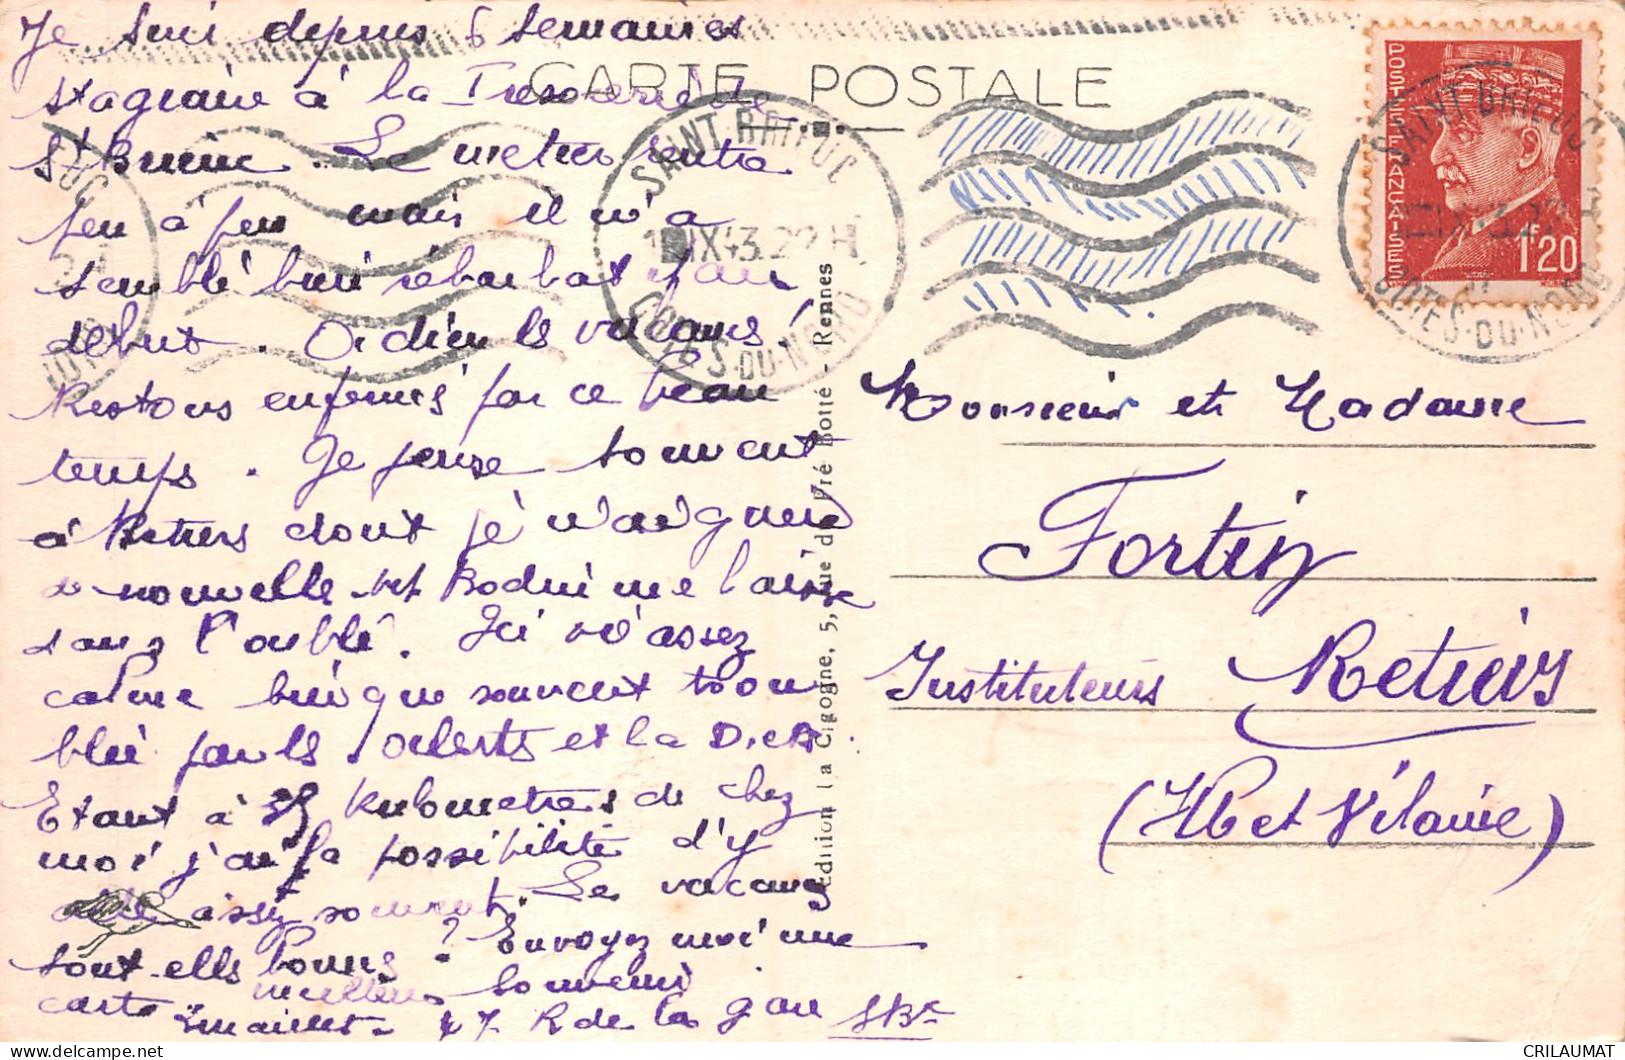 Je suis depuis 6 semaines
stagiaire à la Tresorerie de
St Brieuc. Le metier rentre
peu à peu mais il m'a
semblé bien rébarbatif au
début. Adieu les vacances!
Restons enfermés par ce beau
temps. Je pense souvent
à Retiers dont je n'ai guère
de nouvelle. Bodin me laisse
dans l'oubli. Ici assez
calme bien que souvent trou
blé par les alertes et la D.C.A.
Etant à 35 kilometres de chez
moi j'ai la possibilité d'y
aller assez souvent. Les vacances
sont-elles bonnes? Envoyez moi une
carte. meilleurs souvenirs
17 R de la gare St Bc
CARTE POSTALE
SAINT-BRIEUC
IX 43. 22 H
COTES-DU-NORD
Edition La Cigogne, 5, rue du Pré Botté - Rennes
POSTES FRANÇAISES
1F20
SAINT-BRIEUC
COTES-DU-NORD
Monsieur et Madame
Fortin
Instituteurs Retiers
(Ille et Vilaine)
CRILAUMAT